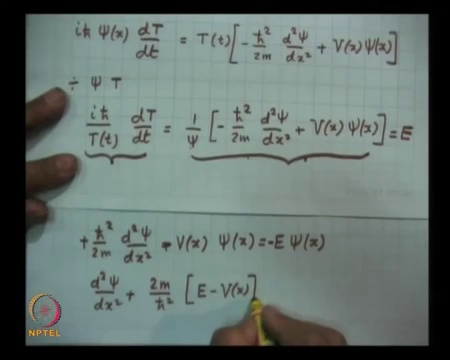 iħ Ψ(x) dT/dt = T(t) [ - ħ²/2m d²Ψ/dx² + V(x) Ψ(x) ]
÷ Ψ T
iħ/T(t) dT/dt = 1/Ψ [ - ħ²/2m d²Ψ/dx² + V(x) Ψ(x) ] = E
+ ħ²/2m d²Ψ/dx² - V(x) Ψ(x) = -E Ψ(x)
d²Ψ/dx² + 2m/ħ² [ E - V(x) ]
NPTEL